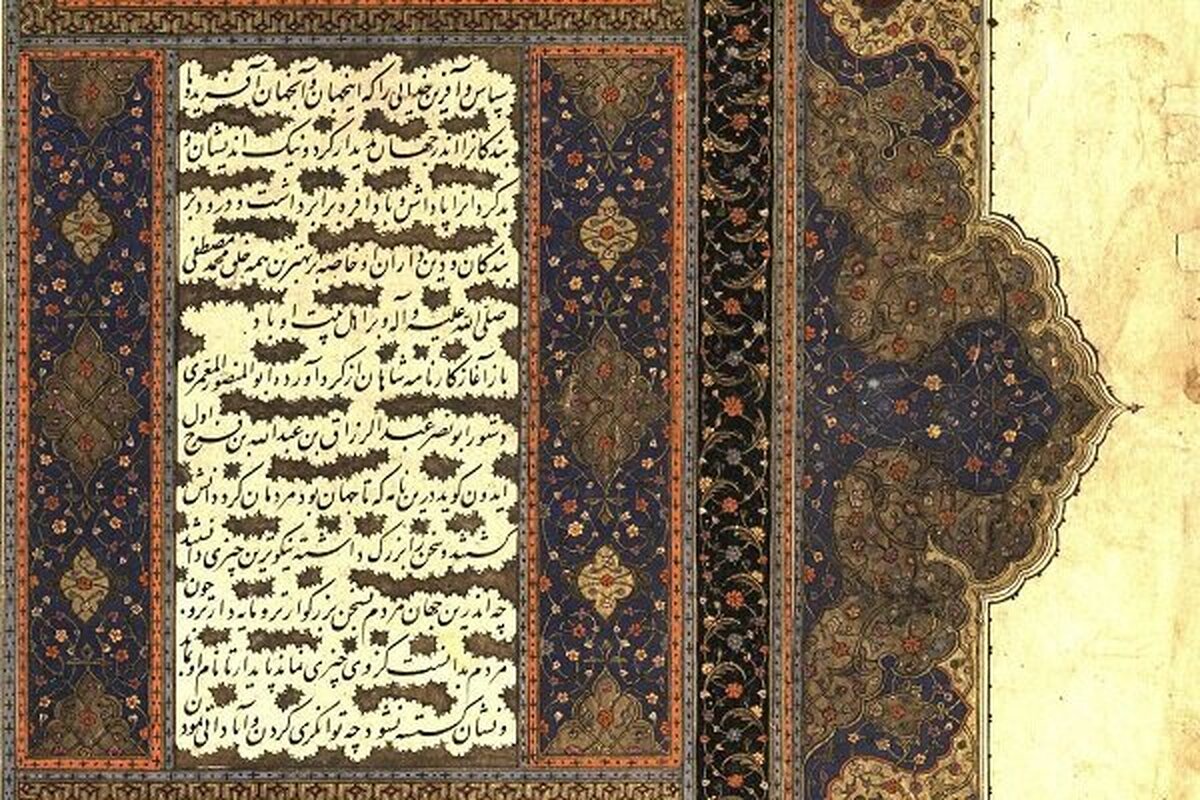 سپاس و آفرین خدائی را که اینجهان و آنجهان آفریده و ما
بندکانرا اندر جهان پدیدار کرد و نیک اندیشان و
بدکردانرا پاداش و بادافره برابر داشت و درود بر
بندکان و دین داران او خاصه بر بهترین همه خلق محمد مصطفی
صلی الله علیه و آله و بر اهل بیت او باد
باز آغاز کارنامه شاهان از کردآورده ابوالمنصور المعمری
دستور ابونصر عبدالرزاق بن عبدالله بن فرخ اول
ایدون کوید درین نامه که تا جهان بود مردمان کرد دانش
کشتند و سخن را بزرک داشته نیکوترین چیزی دانستند
چه اندرین جهان مردم بسخن بزرکوارتر و مایه دارترو چون
مردم بدانست کزوی چیزی نماند پایدار تا نام او بماند
و نشان کسسته نشود چه توانکری کردن و آبادانی نمودن